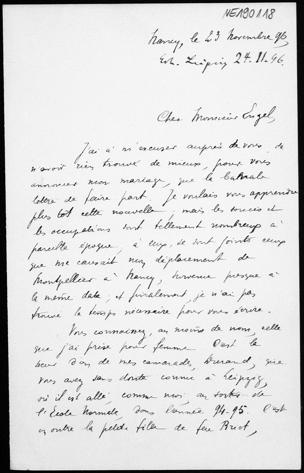 NE190118
Nancy, le 23 Novembre 96,
Erh. Leipzig 24.11.96.
Cher Monsieur Engel,
J'ai à m'excuser auprès de vous, de
n'avoir rien trouvé de mieux, pour vous
annoncer mon mariage, que la banale
lettre de faire part. Je voulais vous apprendre
plus tôt cette nouvelle, mais les soucis et
les occupations sont tellement nombreux à
pareille époque, à eux, se sont joints ceux
que me causait mon déplacement de
Montpellier à Nancy, survenu presque à
la même date; et finalement, je n'ai pas
trouvé le temps nécessaire pour vous écrire.
Vous connaissez, au moins de nom, celle
que j'ai prise pour femme. C'est la
sœur d'un de mes camarades, que
vous avez sans doute connu à Leipzig,
où il est allé, comme moi, au sortir de
l'École Normale, dans l'année 94-95. C'est
en outre la petite fille de feu Briot,